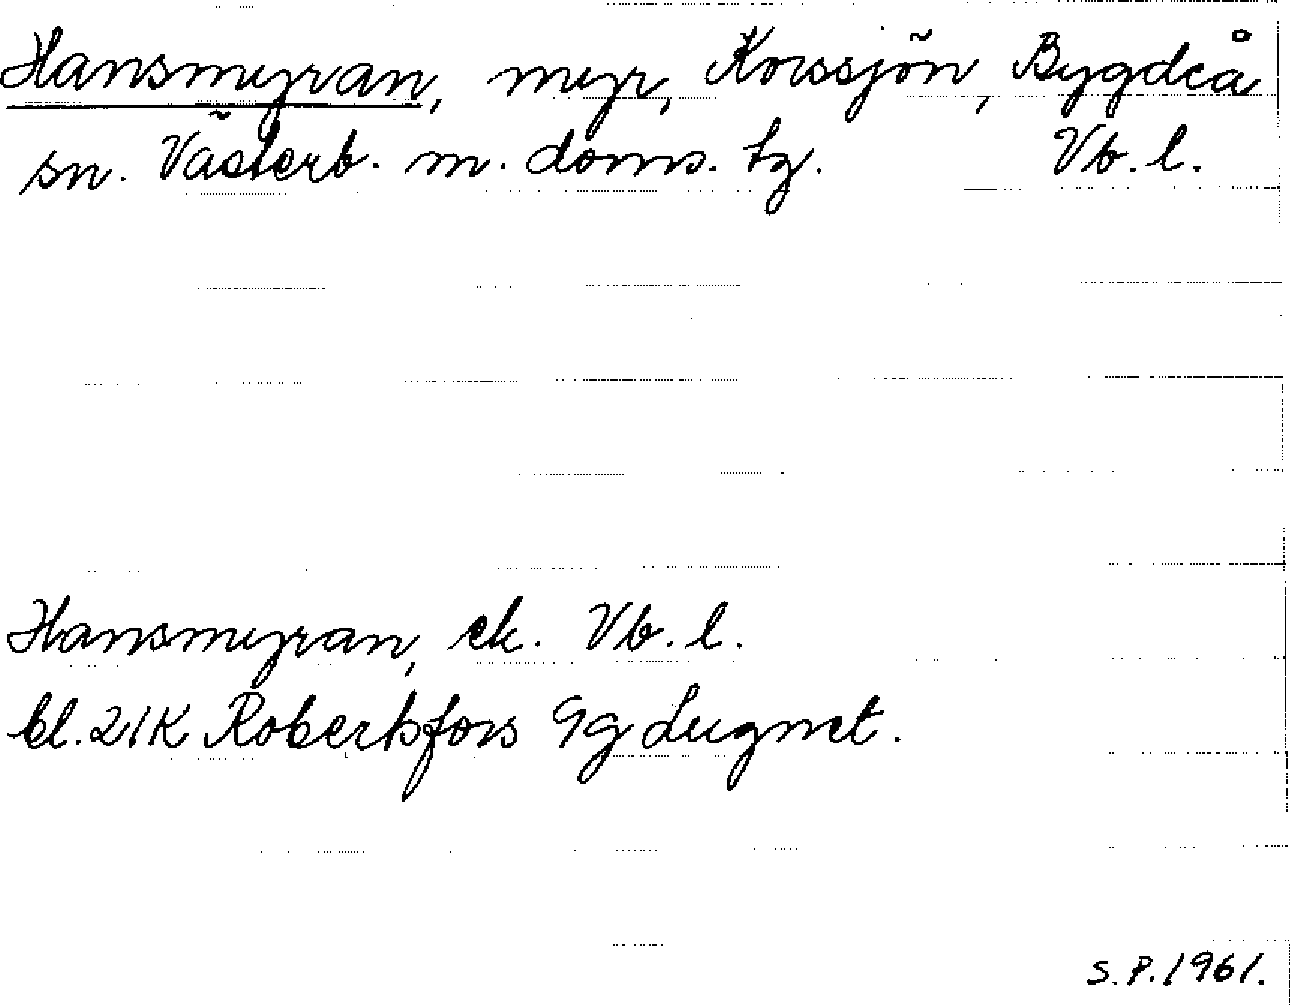 Hansmyran, myr, Korssjön, Bygdeå
sn. Västerb. m. doms. tg. Vb. l.
Hansmyran, ek. Vb. l.
bl. 21K Robertsfors 9g Lugnet.
S.P. 1961.